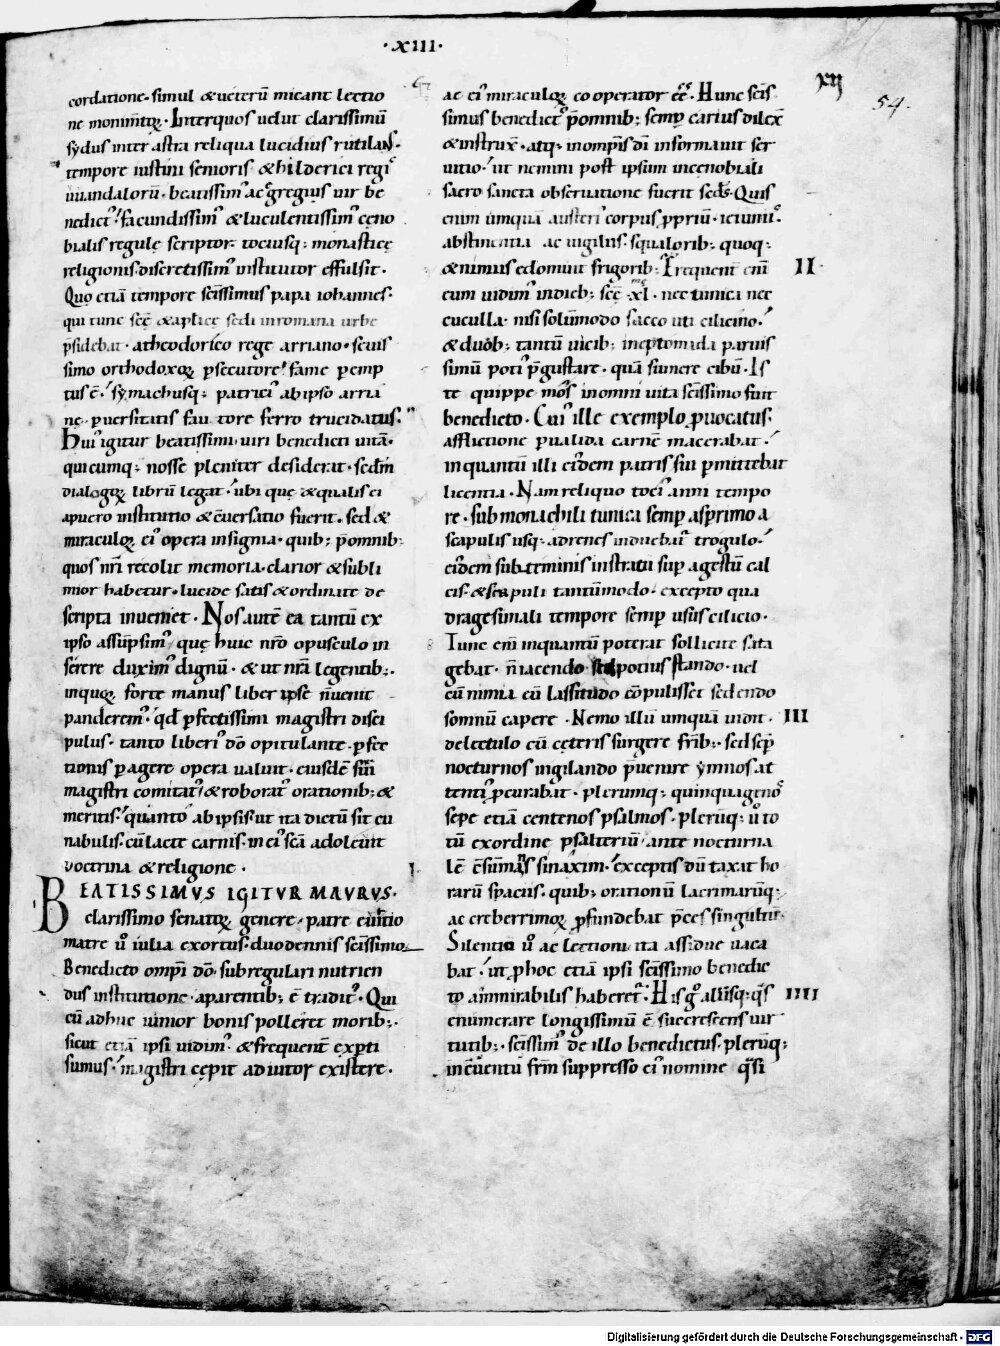 · XIII ·
XII
54.
cordatione · simul & ueterū micant lectio
ne monim̄toꝝ · Inter quos uelut clarissimū
sydus inter astra reliqua lucidius rutilans ·
tempore iustini senioris & hilderici regiꝰ
uuandalorū · beatissimꝰ ac egregius uir be
nedictꝰ facundissimꝰ & luculentissimꝰ ceno
bialis regulę scriptor · tociusq; monasticę
religionis discretissimꝰ institutor effulsit ·
Quo etiā tempore sc̄issimus papa iohannes ·
qui tunc sc̄ę & aplicę sedi in romana urbe
p̄sidebat · a theodorico rege arriano · seuis
simo orthodoxoꝝ ꝑsecutore · fame ꝑemp
tus ē · symachusq; patriciꝰ ab ipso arria
nę ꝑuersitatis fautore ferro trucidatus ·
Huiꝰ igitur beatissimi uiri benedicti uitā ·
qui cumq; nosse pleniter desiderat · sc̄dm̄
dialogoꝝ librū legat · ubi quę & qualis ei
a puero institutio & c̄uersatio fuerit · sed &
miraculoꝝ eiꝰ opera insignia · quib; p̄ omnib;
quos nr̄i recolit memoria · clarior & subli
mior habetur · lucide satis & ordinate de
scripta inueniet · Nos autē ea tantū ex
ipso assūpsimꝰ quę huic nr̄o opusculo in
serere duximꝰ dignū · & ut nr̄a legentib; ·
in quoꝝ forte manus liber ipse n̄ uenit
panderemꝰ · qd̄ ꝑfectissimi magistri disci
pulus · tanto liberiꝰ dō opitulante · ꝑfec
tionis ꝑagere opera ualuit · eiusdē sui
magistri comitatꝰ & roboratꝰ orationib; &
meritis · quanto ab ipsis ut ita dictū sit cu
nabulis · cū lacte carnis · in eiꝰ sc̄ā adoleuit
doctrina & religione ·
BEATISSIMVS IGITVR MAVRVS · I
clarissimo senatoꝝ genere · patre euitio
matre ū iulia exortus · duodennis sc̄issimo
Benedicto omp̄i dō · sub regulari nutrien
dus institutione · a parentib; ē traditꝰ · Qui
cū adhuc iunior bonis polleret morib; ·
sicut etiā ipsi uidimꝰ & frequent̄ exꝑti
sumus · magistri cępit adiutor existere ·
ac eiꝰ miraculoꝝ cooperator eē · Hunc sc̄is
simus benedictꝰ p̄ omnib; semꝑ carius dilex̄
& instrux̄ · atq; in omp̄is dī informauit ser
uitio · ut nemini post ipsum in cenobiali
sacro sancta obseruatione fuerit sc̄ds · Quis
enim umquā austeriꝰ corpus ꝓpriū · ieiuniiꝰ
abstinentia ac uigiliis · squalorib; quoq;
& nimiis edomuit frigorib; Frequent̄ eni II
cum uidimꝰ in dieb; sc̄ę · xl · nec tunica nec
cuculla · nisi solūmodo sacco uti cilicino ·
& duob; tantū uicib; in eptomada paruis
simū potiꝰ p̄gustare · quā sumere cibū · Is
te quippe mōs in omni uita sc̄issimo fuit
benedicto · Cuiꝰ ille exemplo ꝓuocatus ·
afflictione ꝑualida carnē macerabat ·
in quantū illi eiꝰdem patris sui ꝑmittebat
licentia · Nam reliquo tociꝰ anni tempo
re · sub monachili tunica semꝑ asꝑrimo a
scapulis usq; ad renes induebatꝰ trogulo ·
eiꝰdem sub terminis in stratu suꝑ agestū cal
cis · & scapuli tantūmodo · excepto qua
dragesimali tempore semꝑ usus cilicio ·
Tunc eni in quantū poterat sollicite sata
gebat · n̄ iacendo potius stando · uel
cū nimia eū lassitudo cōpulisset sedendo
somnū capere · Nemo illū umquā uidit · III
de lectulo cū ceteris surgere fr̄ib; · sed seꝑ
nocturnos uigilando p̄uenire ymnos at
tentiꝰ ꝓcurabat · plerumq; quinquagenoꝰ
sepe etiā centenos psalmos · plerūq; ū to
tū ex ordine psalteriū · ante nocturna
lē c̄sūmans sinaxim · exceptis dū taxat ho
rarū spaciis · quib; orationū lacrimarūq;
ac creberrimoꝝ ꝓfundebat p̄ces singultuū ·
Silentio ū ac lectioni ita assidue uaca
bat · ut ꝑ hoc etiā ipsi sc̄issimo benedic
to ammirabilis haberetꝰ · His g° aliisq; q̄s IIII
enumerare longissimū ē succrescens uir
tutib; · sc̄issimꝰ de illo benedictus · plerūq;
in c̄uentu fr̄m suppresso eiꝰ nomine q̄si
Digitalisierung gefördert durch die Deutsche Forschungsgemeinschaft - DFG